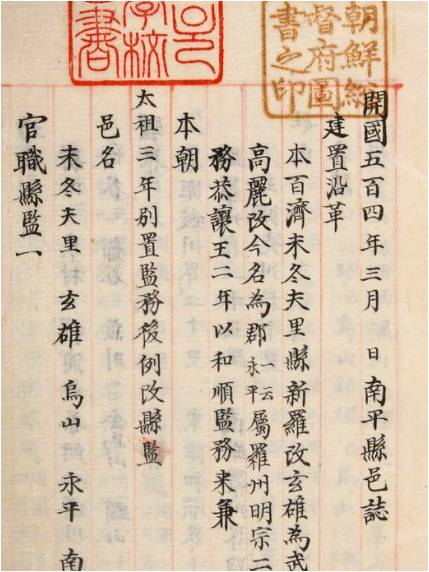 朝鮮總
督府圖
書之印
開國五百四年三月 日南平縣邑誌
建置沿革
本百濟未冬夫里縣新羅改玄雄為武
高麗改今名為郡一云永平屬羅州明宗二
務恭讓王二年以和順監務来兼
本朝
太祖三年別置監務後例改縣監
邑名
未冬夫里玄雄 烏山 永平 南
官職縣監一